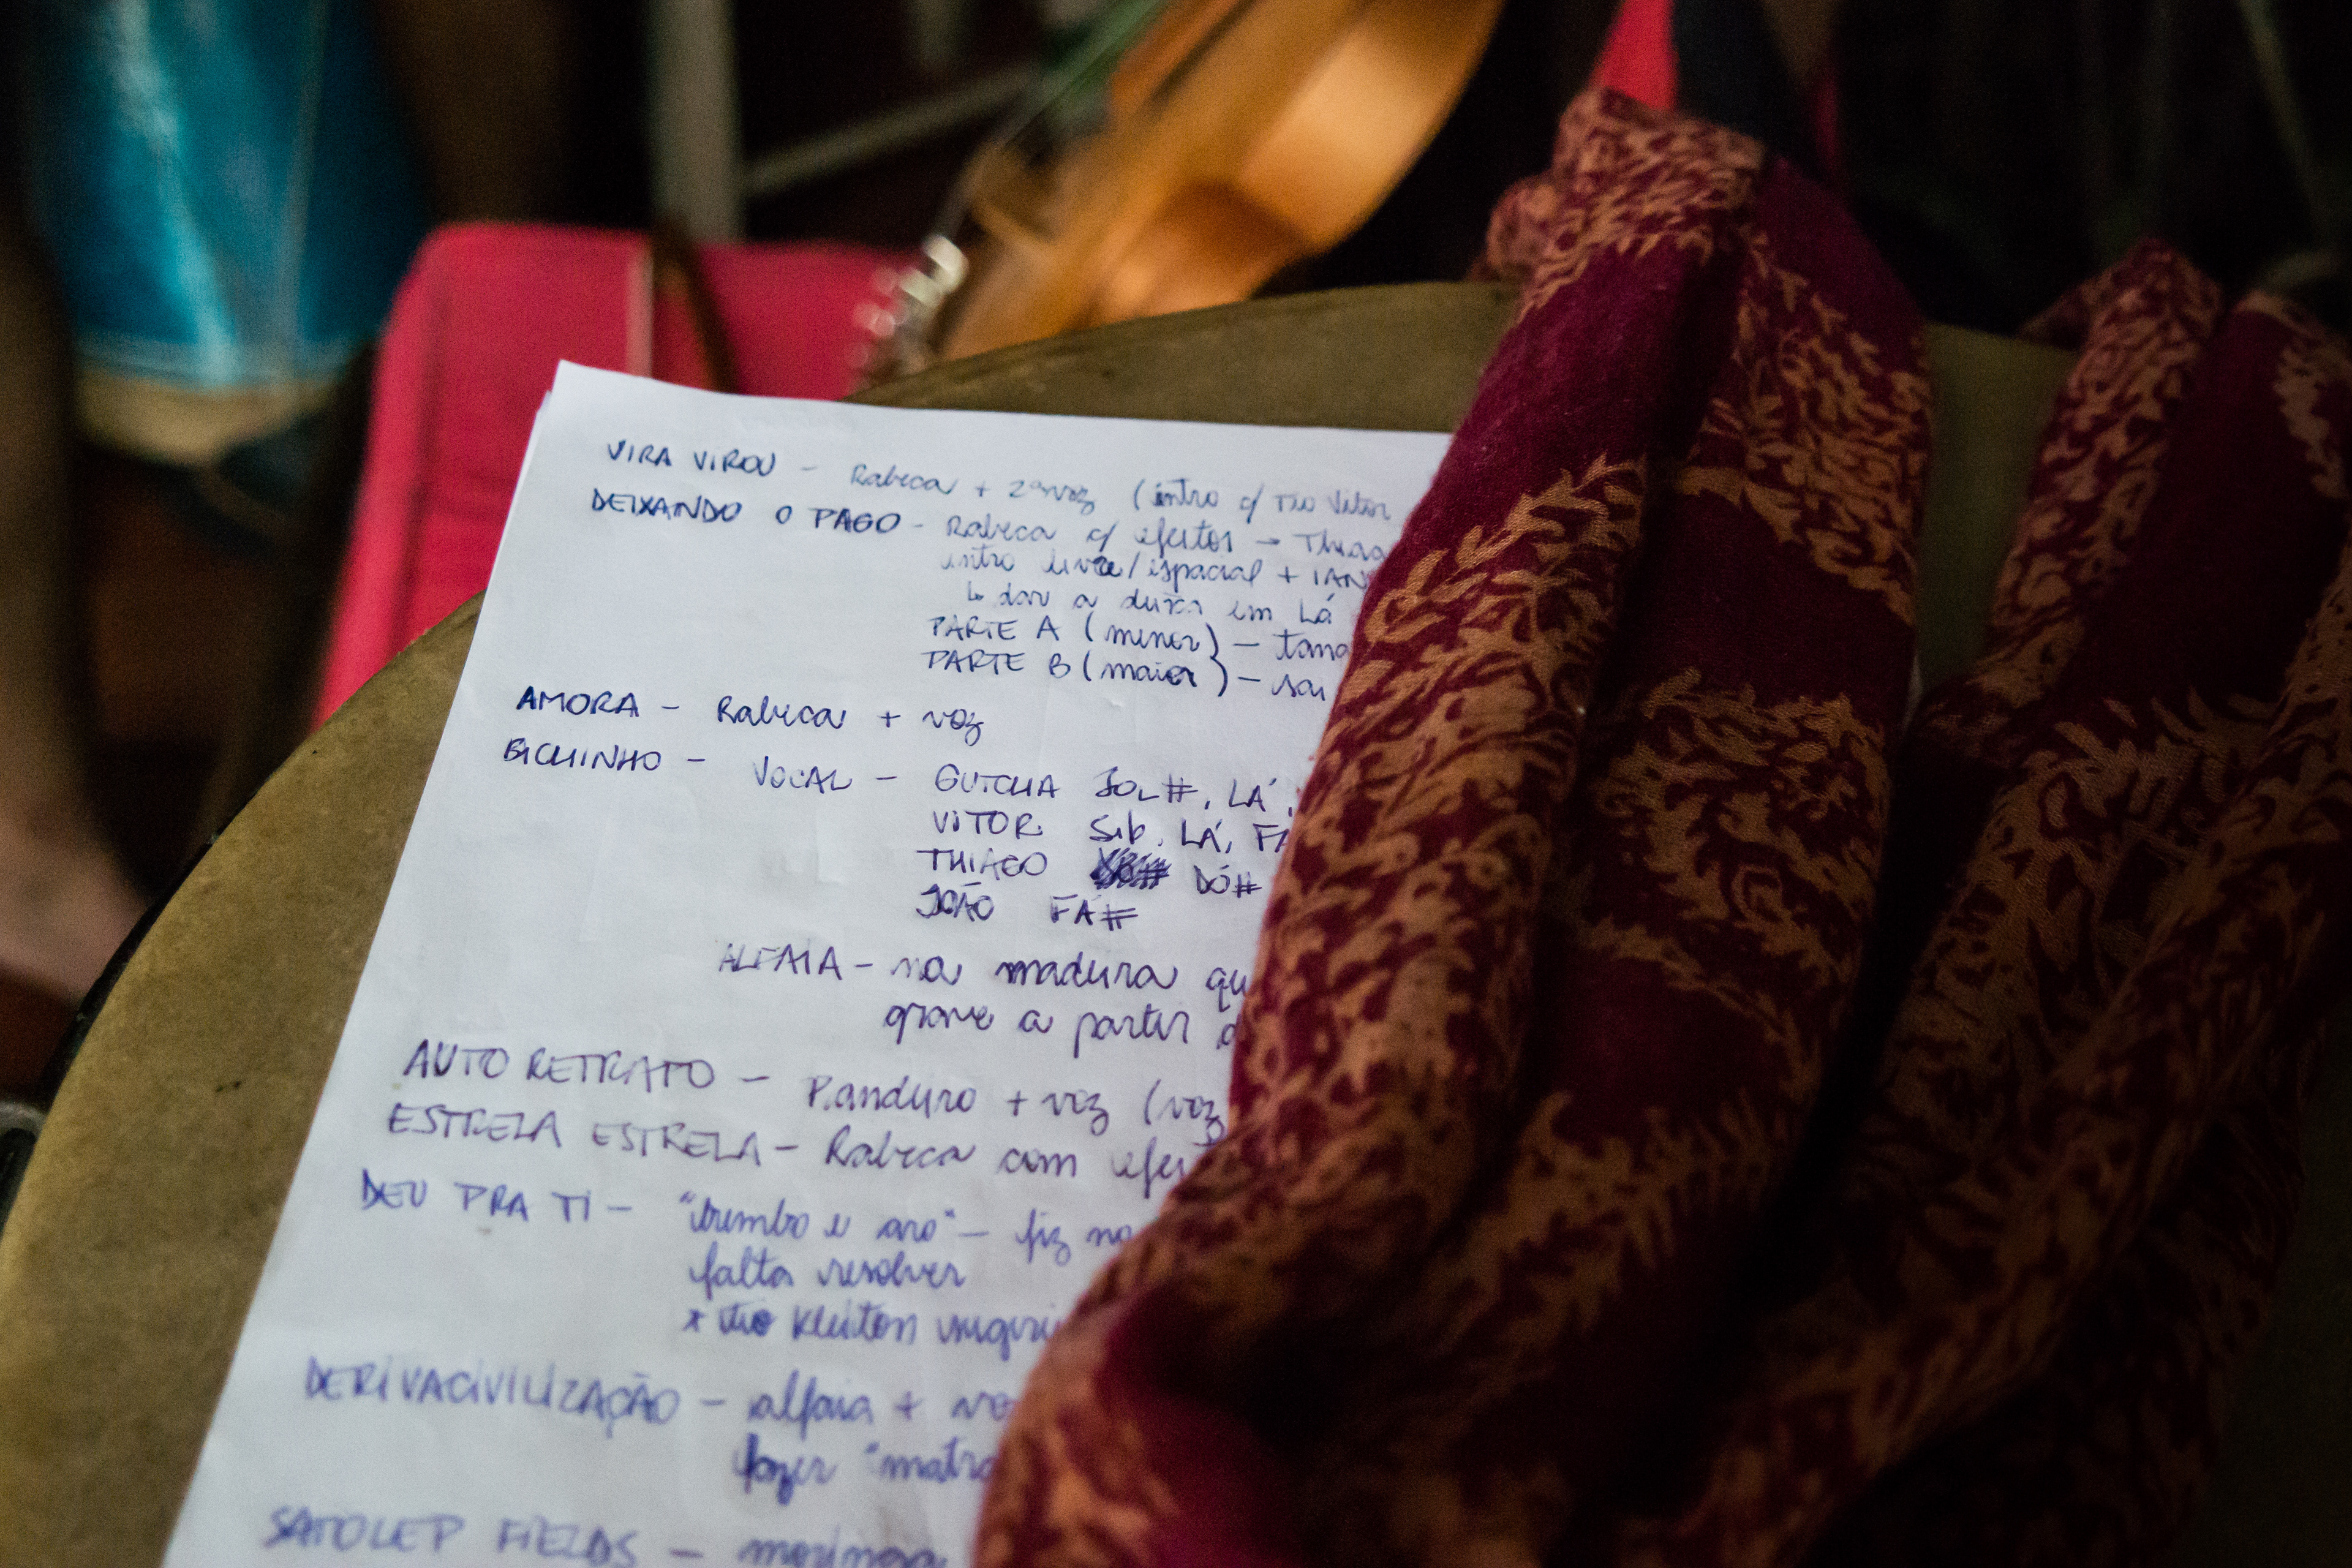 VIRA VIROU - Rabeca + 2ª voz (intro c/ TIO Vitor
DEIXANDO O PAGO - Rabeca c/ efeitos → Thiag
intro livre/espacial + IAN
↳ dar a deixa em Lá
PARTE A (menor) - tama
PARTE B (maior) - sai
AMORA - Rabeca + voz
BICHINHO - VOCAL - GUTCHA SOL#, LÁ,
VITOR Sib, LÁ, FÁ
THIAGO DÓ#
JOÃO FÁ#
ALFAIA - na madura qu
grave a partir d
AUTO RETRATO - P.anduro + voz (voz
ESTRELA ESTRELA - Rabeca com efeit
DEU PRA TI - "bumbo e aro" - fiz na
falta resolver
* tio Kleiton sugeriu
DERIVACIVILIZAÇÃO - alfaia + vo
fazer "matra
SATOLEP FIELDS - moringa